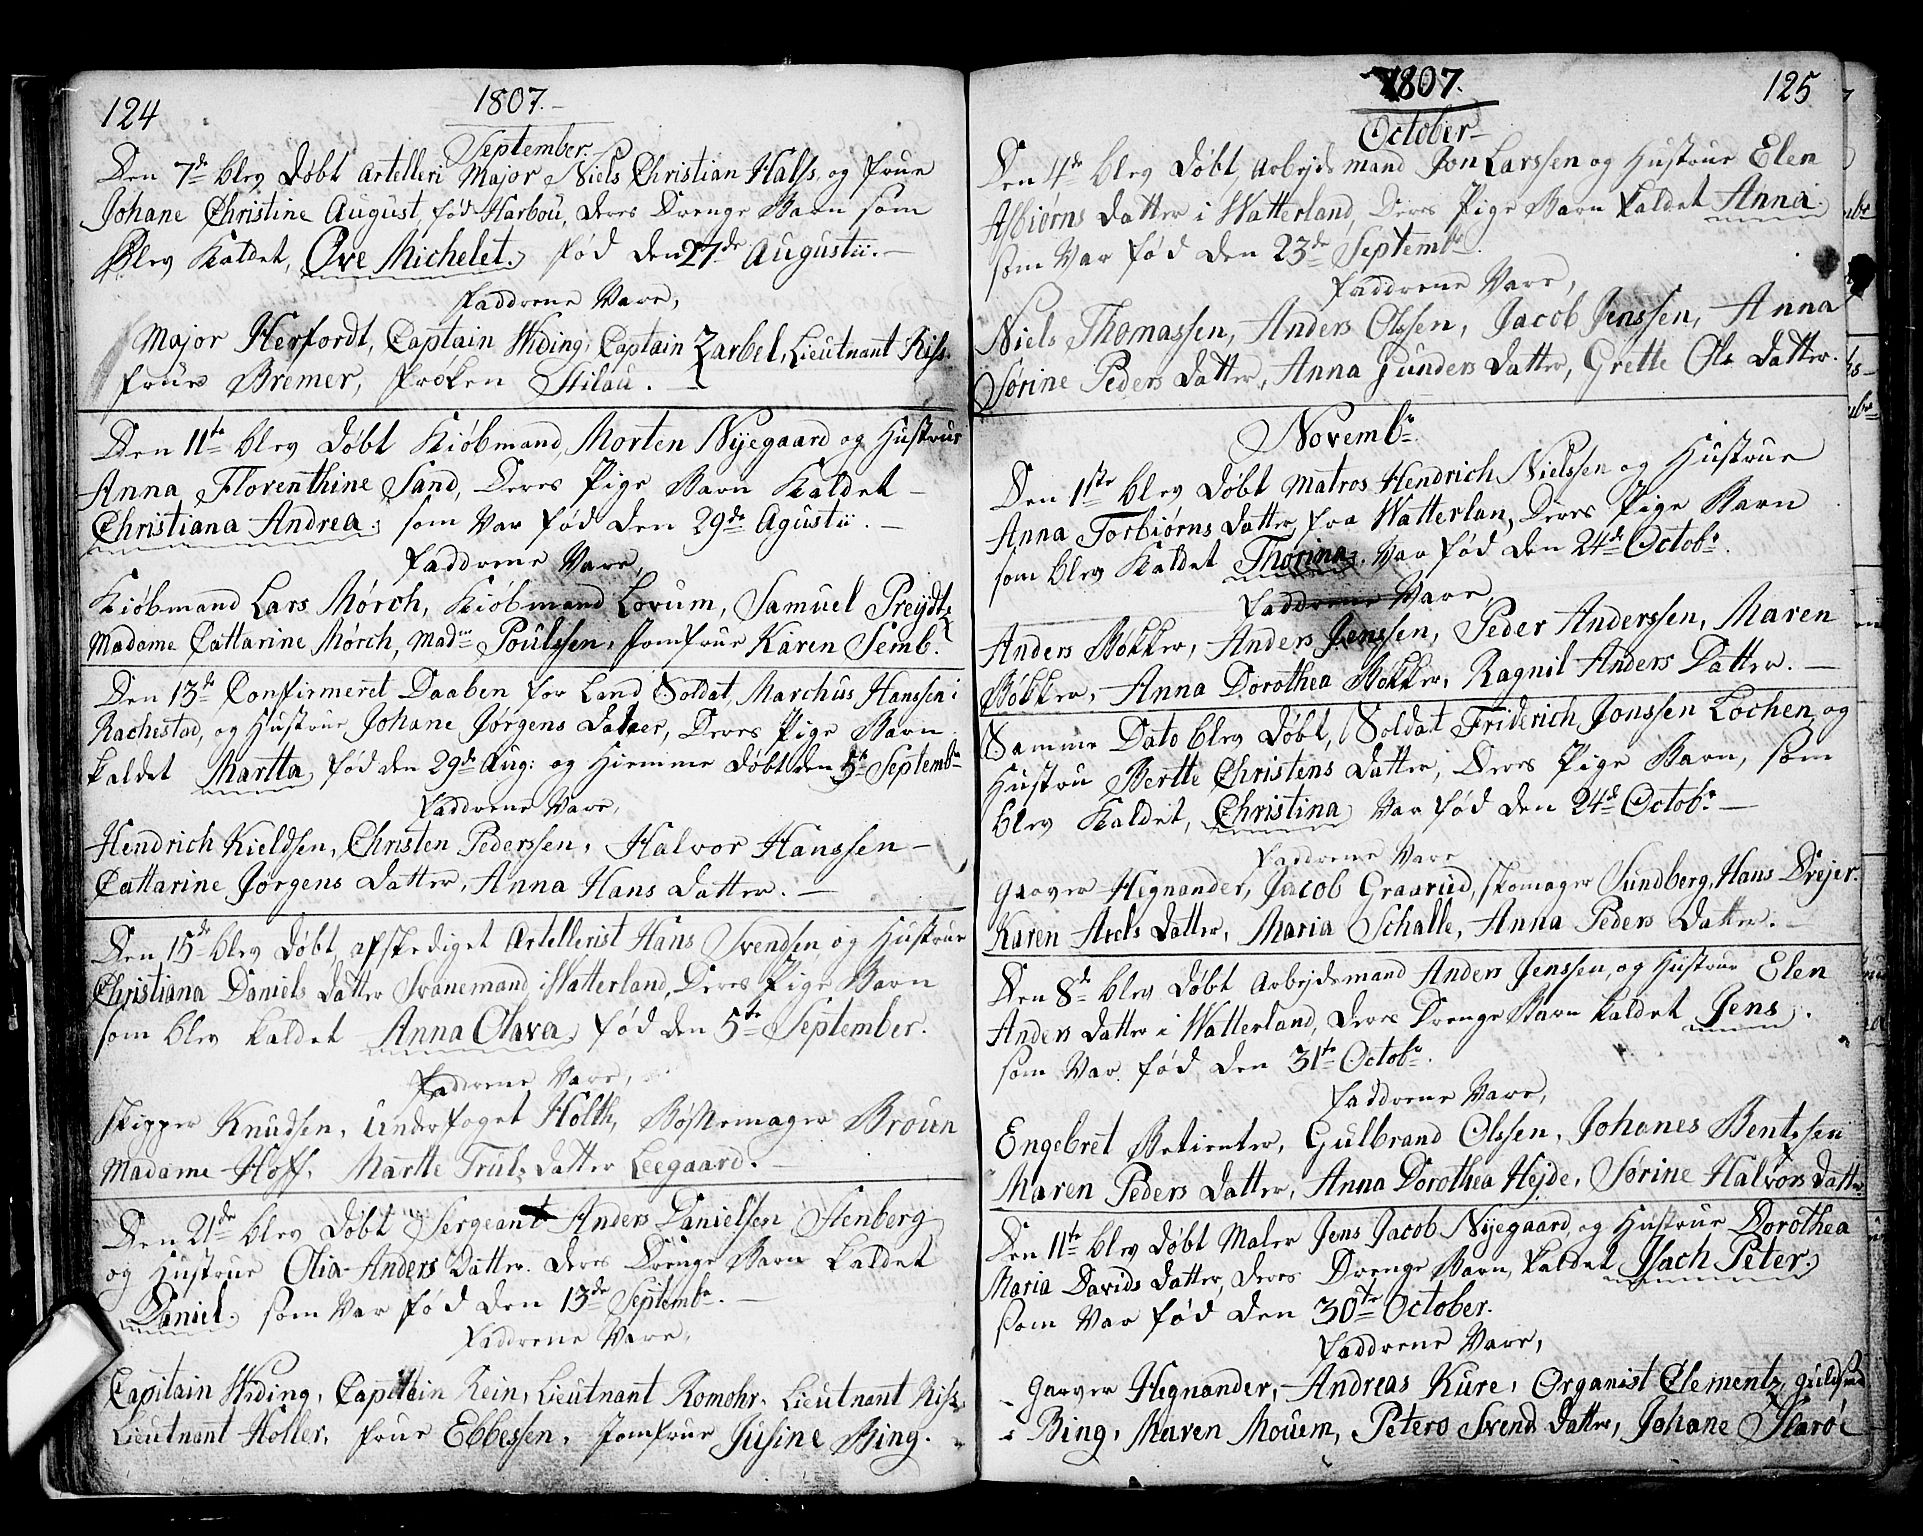 124
1807.
September
Den 7de blev døbt Artelleri Major Niels Christian Halss, og Frue
Johane Christine August, fød Harbou, deres Drenge Barn som
blev Kaldet, Ove Michelet. fød den 27de Augustii.
Faddrene Vare,
Major Herfordt, Captain Widing, Captain Zarbel, Lieutnant Riss.
Frue Bremer, Frøken Stilau.
Den 11te blev døbt Kiöbmand Morten Nyegaard og Hustrue
Anna Florenthine Sand, Deres Pige Barn Kaldet
Christiana Andrea, som Var fød den 29de Agustii.
Faddrene Vare,
Kiöbmand Lars Mörch, Kiöbmand Lorum, Samuel Preydtz
Madame Cattarine Mörch, Mad. Poulssen, Jomfrue Karen Semb.
Den 13de Confirmeret Daaben for Land Soldat Marchus Hanssen i
Rachestad, og Hustrue Johane Jörgens Datter, Deres Pige Barn
kaldet Martta, fød den 29de Aug: og Hiemme døbt den 5te Septembr
Faddrene Vare,
Hendrich Kieldsen, Christen Pederssen, Halvor Hanssen
Cattarine Jörgens Datter, Anna Hans Datter.
Den 15de blev døbt afskediget Artellerist Hans Svendsen, og Hustrue
Christiana Daniels Datter Svanemand i Watterland, Deres Pige Barn
som blev kaldet Anna Olava, fød den 5te September.
Faddrene Vare,
Skipper Knudsen, Underfoget Holth, Bössemager Broun
Madame Hoff, Martte Truls Datter Leegaard.
Den 21de blev døbt Sergeant Anders Danielsen Stenberg
og Hustrue Olia Anders Datter. Deres Drenge Barn kaldet
Daniel. som Var fød den 13de Septembr.
Faddrene Vare,
Capitain Widing, Capitain Rein, Lieutnant Romohr, Lieutnant Riss,
Lieutnant Höller, Frue Ebbessen, Jomfrue Jusine Bing.
1807.
125
October
Den 4de blev døbt Arbejdsmand Jon Larssen og Hustrue Elen
Asbiørns Datter i Watterland, Deres Pige Barn kaldet Anna
som Var fød den 23de Septembr.
Faddrene Vare,
Niels Thomassen, Anders Olssen, Jacob Jenssen, Anna
Sörine Peders Datter, Anna Gunders Datter, Grette Ols Datter.
Novembr.
Den 1ste blev døbt Matros Hendrich Nielssen og Hustrue
Anna Torbiørns Datter, fra Watterlan, Deres Pige Barn
som blev Kaldet Thorina, Var fød den 24de Octobr.
Faddrene Vare,
Anders Bökker, Anders Jenssen, Peder Anderssen, Maren
Bökker, Anna Dorothea Bökker, Ragnil Anders Datter.
Samme Dato blev døbt, Soldat Friderich Jonssen Lochen, og
Hustru Bertte Christens Datter, Deres Pige Barn, som
blev Kaldet, Christina Var fød den 24d Octobr.
Faddrene Vare
Garver Hegnander, Jacob Graarud, Skomager Sundberg, Hans Drejer.
Karen Axels Datter, Maria Schalle, Anna Peders Datter.
Den 8de blev døbt Arbejdsmand Anders Jenssen, og Hustrue Elen
Anders Datter i Watterland, Deres Drenge Barn kaldet Jens.
som Var fød den 31te Octobr.
Faddrene Vare,
Engebret Betienter, Gulbrand Olssen, Johanes Bentzsen
Maren Peders Datter, Anna Dorothea Hejde, Sörine Halvors Datter
Den 11te blev døbt Maler Jens Jacob Nyegaard, og Hustrue Dorothea
Maria Davids Datter, Deres Drenge Barn, kaldet Isach Peter.
som Var fød den 30te October.
Faddrene Vare,
Garver Hegnander, Andreas Kure, Organist Clementz, Guldsmed
Bing, Maren Mouem, Petero Svends Datter, Johane Skaröe